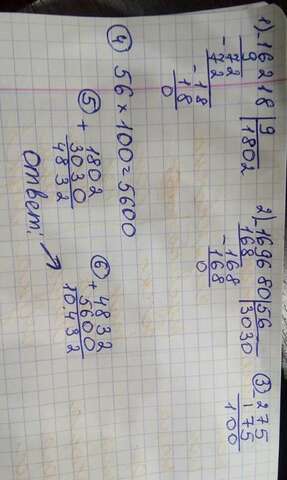 1) - 16218 | 9
9 | 1802
- 72
72
- 18
18
0
2) - 169680 | 56
168 | 3030
- 168
168
0
③ - 275
175
100
④ 56 × 100 = 5600
⑤ + 1802
3030
4832
⑥ + 4832
5600
10432
Ответ: ↗